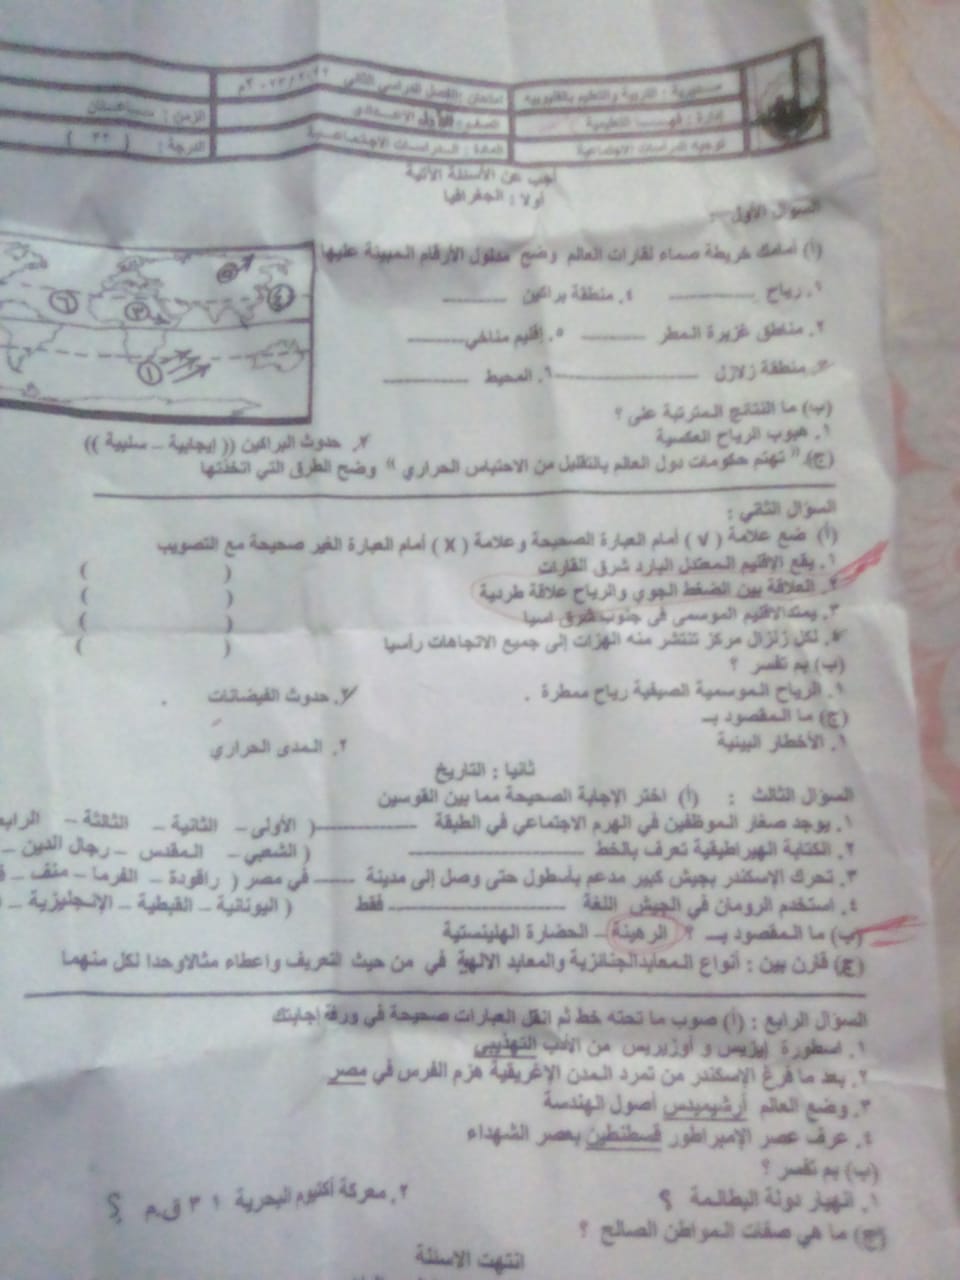 مديرية : التربية والتعليم بالقليوبية
امتحان الفصل الدراسي الثاني ٢٠٢٢/٢٠٢٣م
إدارة : قها التعليمية
الصف : الأول الاعدادي
الزمن : ساعتان
توجيه الدراسات الاجتماعية
المادة : الدراسات الاجتماعية
الدرجة :
أجب عن الأسئلة الآتية
أولا : الجغرافيا
السؤال الأول
(أ) أمامك خريطة صماء لقارات العالم وضح مدلول الأرقام المبينة عليها
١. رياح ـــــــ ٤. منطقة براكين ـــــــ
٢. مناطق غزيرة المطر ـــــــ ٥. إقليم مناخي ـــــــ
٣. منطقة زلازل ـــــــ ٦. المحيط ـــــــ
(ب) ما النتائج المترتبة على ؟
١. هبوب الرياح العكسية ٢. حدوث البراكين (( إيجابية – سلبية ))
(ج) " تهتم حكومات دول العالم بالتقليل من الاحتباس الحراري " وضح الطرق التي اتخذتها
السؤال الثاني :
(أ) ضع علامة ( √ ) أمام العبارة الصحيحة وعلامة ( X ) أمام العبارة الغير صحيحة مع التصويب
١. يقع الإقليم المعتدل البارد شرق القارات ( )
٢. العلاقة بين الضغط الجوي والرياح علاقة طردية ( )
٣. يمتدالاقليم الموسمى فى جنوب شرق اسيا ( )
٤. لكل زلزال مركز تنتشر منه الهزات إلى جميع الاتجاهات رأسيا ( )
(ب) بم تفسر ؟
١. الرياح الموسمية الصيفية رياح ممطرة . ٢. حدوث الفيضانات .
(ج) ما المقصود بـ
١. الأخطار البيئية ٢. المدى الحراري
ثانيا : التاريخ
السؤال الثالث : (أ) اختر الإجابة الصحيحة مما بين القوسين
١. يوجد صغار الموظفين في الهرم الاجتماعي في الطبقة ـــــــ ( الأولى – الثانية – الثالثة –
٢. الكتابة الهيراطيقية تعرف بالخط ـــــــ ( الشعبي – المقدس – رجال الدين –
٣. تحرك الإسكندر بجيش كبير مدعم بأسطول حتى وصل إلى مدينة ـــــــ في مصر ( راقودة – الفرما – منف –
٤. استخدم الرومان في الجيش اللغة ـــــــ فقط ( اليونانية – القبطية – الإنجليزية –
(ب) ما المقصود بـ ؟ الرهينة – الحضارة الهلينستية
(ج) قارن بين : أنواع المعابدالجنائزية والمعابد الالهية في من حيث التعريف واعطاء مثالاواحدا لكل منهما
السؤال الرابع : (أ) صوب ما تحته خط ثم انقل العبارات صحيحة في ورقة إجابتك
١. اسطورة إيزيس و أوزيريس من الأدب التهذيبي
٢. بعد ما فرغ الإسكندر من تمرد المدن الإغريقية هزم الفرس في مصر
٣. وضع العالم أرشيميدس أصول الهندسة
٤. عرف عصر الإمبراطور قسطنطين بعصر الشهداء
(ب) بم تفسر ؟
١. انهيار دولة البطالمة ؟ ٢. معركة أكتيوم البحرية ٣١ ق.م ؟
(ج) ما هي صفات المواطن الصالح ؟
انتهت الاسئلة